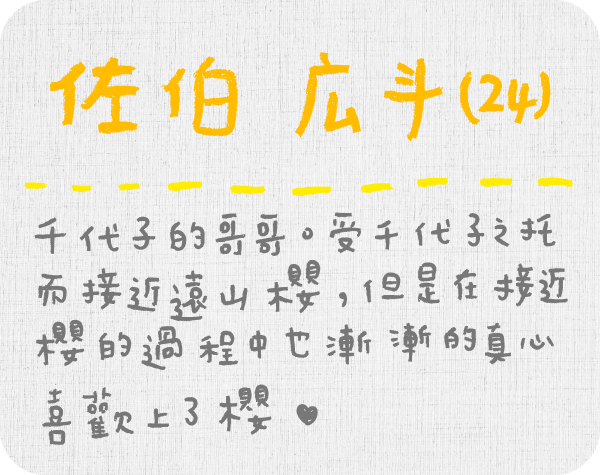 佐伯 広斗(24)
千代子的哥哥。受千代子之托
而接近遠山櫻，但是在接近
櫻的過程中也漸漸的真心
喜歡上了櫻♥